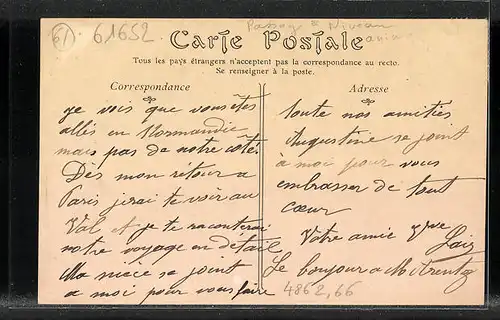 61 61652
Passage à Niveau
Carte Postale
Tous les pays étrangers n'acceptent pas la correspondance au recto.
Se renseigner à la poste.
Correspondance
Adresse
je vois que vous êtes
allés en Normandie
mais pas de notre coté.
Dès mon retour a
Paris jirai te voir au
Val et je te raconterai
notre voyage en détail
Ma nièce se joint
a moi pour vous faire
toute nos amitiés
Augustine se joint
à moi pour vous
embrasser de tout
cœur
Votre amie
Le bonjour a M
4862,66